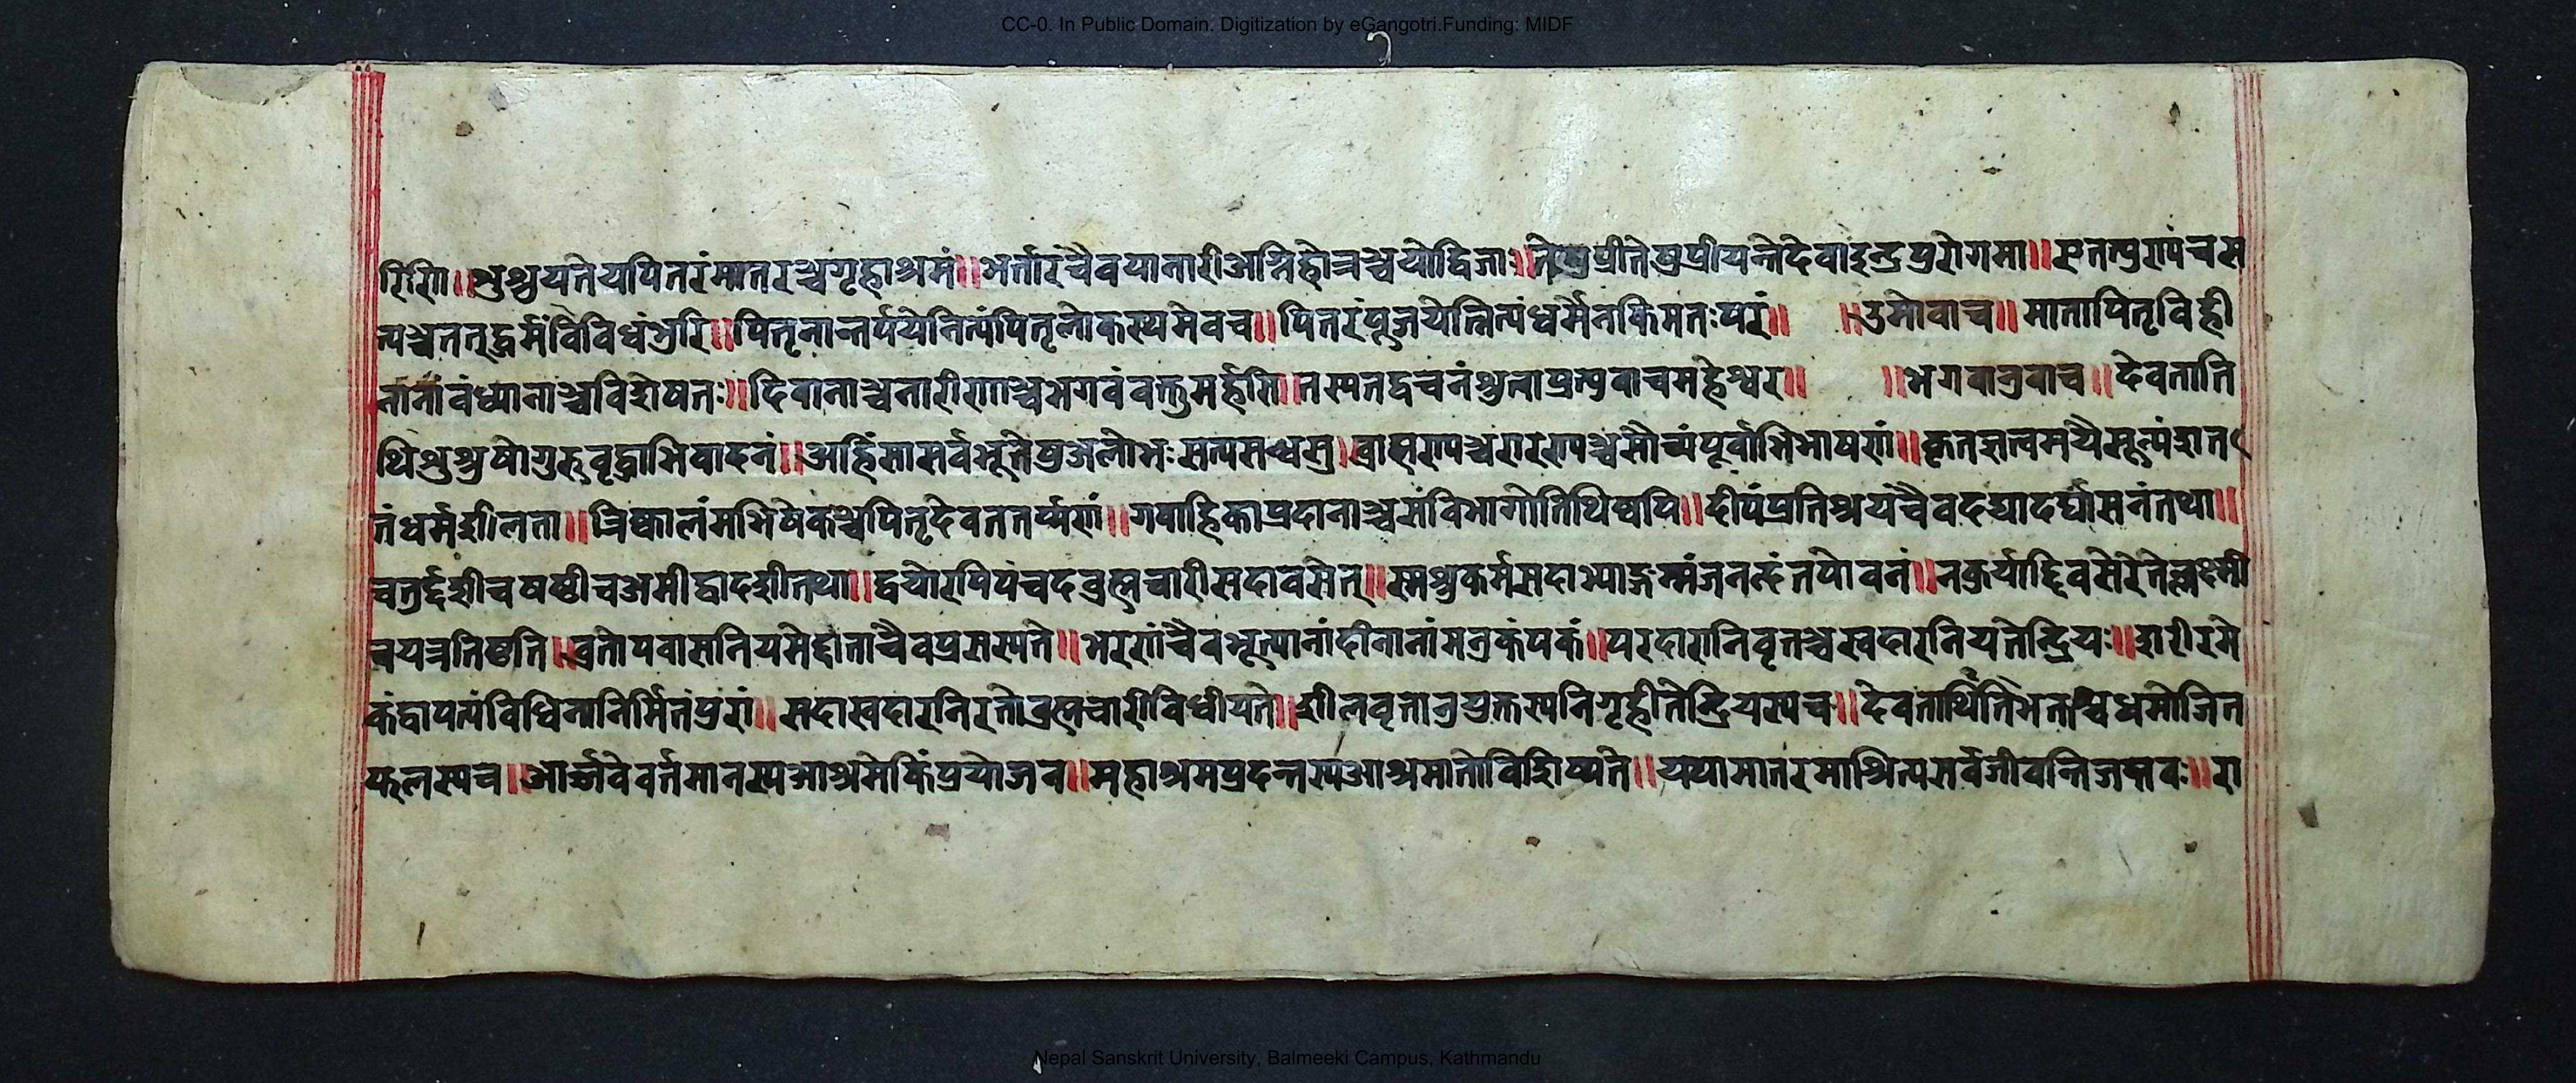 CC-0. In Public Domain. Digitization by eGangotri.Funding: MIDF
रिणि॥शुश्रुयतेयपितरंमातरञ्चगृहाश्रमं॥भर्तारचैवयानारीअग्निहोत्रञ्चयोद्विजाः॥तेषुप्रीतेषुप्रीयन्तेदेवाइन्द्रपुरोगमा॥
त्यञ्चततद्धर्मंविविधंभुरि॥पितृनान्तर्पयेनित्यंपितृलोकस्थमेवच॥पितरंपूजयेन्नित्यंधर्मेनकिमतःपरं॥ ॥उमोवाच॥मातापितृविही
नानांवंध्यानाञ्चविशेषतः॥दिवानाञ्चनारीणाञ्चभगवंवक्तुमर्हसि॥तस्यतद्वचनंश्रुत्वाप्रत्युवाचमहेश्वर॥ ॥भगवानुवाच॥देवताति
थिशुश्रुषोगुरुवृद्धाभिवादनं॥अहिंसासर्वभूतेषुअलोभःसत्यसन्धसु॥ब्राह्मण्यञ्चशरण्यञ्चसौम्यंपूर्वाभिभाषणं॥
तंधर्मशीलता॥त्रिष्कालंमभिषेकञ्चपितृदेवततर्प्पणं॥गवाह्निकाप्रदानाञ्चसंविभागोतिथिष्वपि॥दीपंप्रतिश्रयंचैवदद्यादर्घासनंतथा॥
चतुर्द्दशीचषष्ठीचअमीद्वादशीतथा॥द्वयोरपिपंचदब्रह्मचारीसदावसेत्॥स्मश्रुकर्मसदाभ्याङ्गमंजनन्दंतधोवनं॥नकुर्याद्दिवसेरेतेलक्ष्मी
त्रयत्रतिष्ठति॥व्रतोपवासनियमेद्दोताचैवप्रसस्यते॥भरणांचैवभृत्यानांदीनानांमनुकंपकं॥परदारानिवृतञ्चस्वदारनियतेन्द्रियः॥शरीरमे
कंद्वापत्यंविधिनानिर्मितंपुरां॥सदास्वदारनिरतोब्रह्मचारीविधीयते॥शीलवृत्तानुयुक्तस्यनिगृहीतेन्द्रियस्यच॥देवतार्थितिभक्ताश्चधमोजित
फलस्यच॥आर्ज्जवेवर्तमानस्यआश्रमेकिंप्रयोजन॥महाश्रमप्रदन्तस्यआश्रमातोविशिष्यते॥यथामातरमाश्रित्यसर्वजीवन्तिजन्तवः॥रा
Nepal Sanskrit University, Balmeeki Campus, Kathmandu